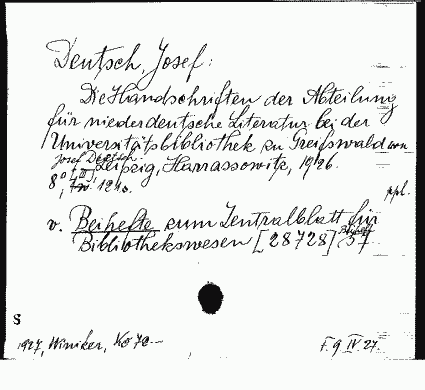 Deutsch, Josef:
Die Handschriften der Abteilung
für niederdeutsche Literatur bei der
Universitätsbibliothek zu Greifswald von
Josef Deutsch
Leipzig, Harrassowitz, 1926.
8°,
ppl.
v. Beihefte zum Zentralblatt für
Bibliothekswesen [28728] 57
S
1927, Winiker,
F. 9 IV 27.